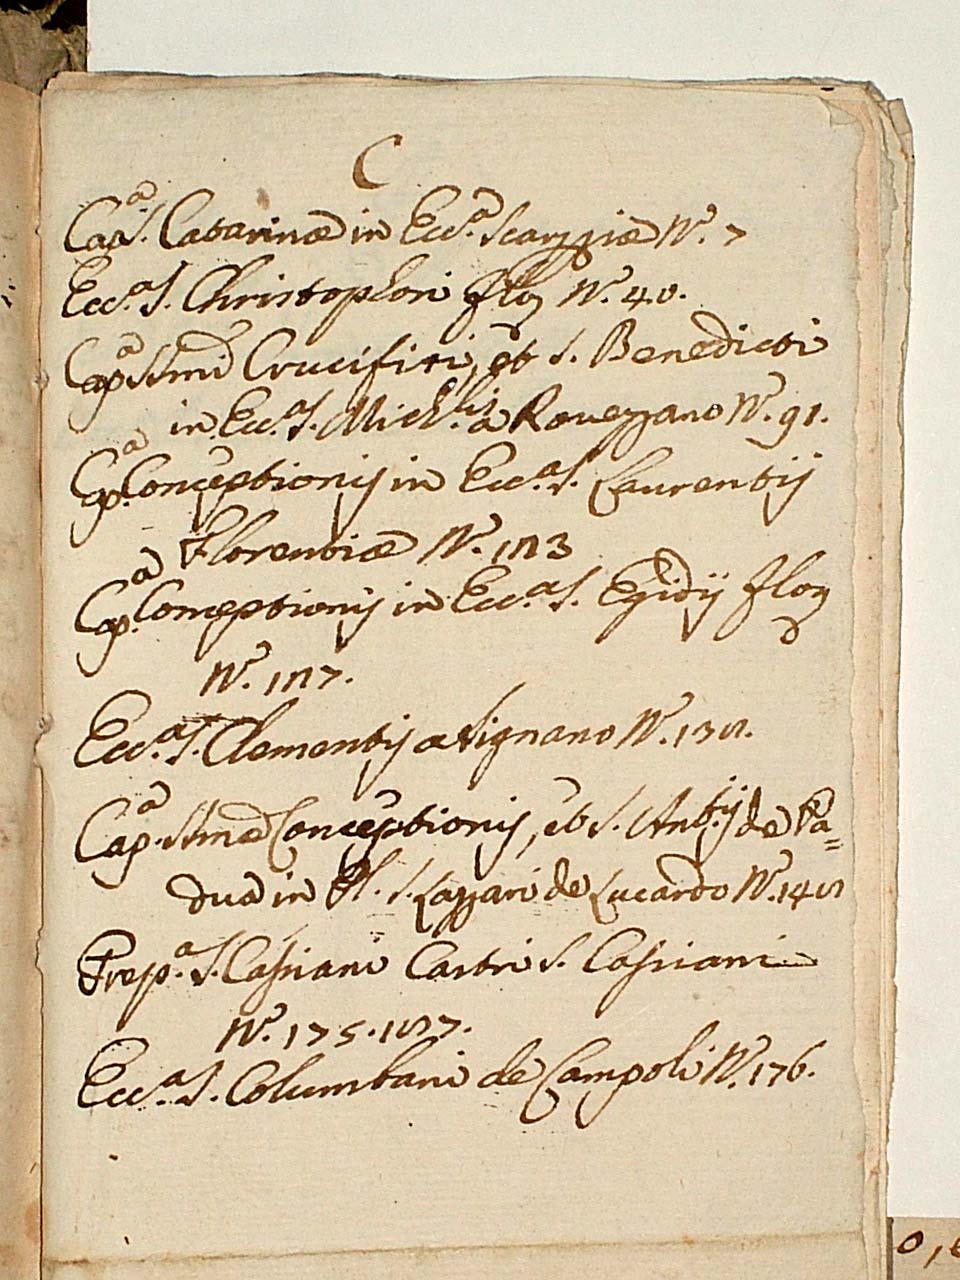 C
Cap.ª S. Catarinæ in Ecc.ª N.º 7
Ecc.ª S. Christophori flor N.º 40.
Cap.ª SSmi Crucifixi, et S. Benedicti
in Ecc.ª S. Mich.lis a Rovezzano N.º 91.
Cap.ª Conceptionis in Ecc.ª S. Laurentij
Florentiæ N.º
Cap.ª Conceptionis in Ecc.ª S. Egidij flor
N.º
Ecc.ª S. Clementij a Signano N.º
Cap.ª SSmæ Conceptionis, et S. Ant.ij de Pa=
dua in Pl. S. Lazzari de Lucardo N.º
Prep.ª S. Cassiani Castri S. Cassiani
N.º 175.
Ecc.ª S. Columbani de Campoli N.º 176.
0,